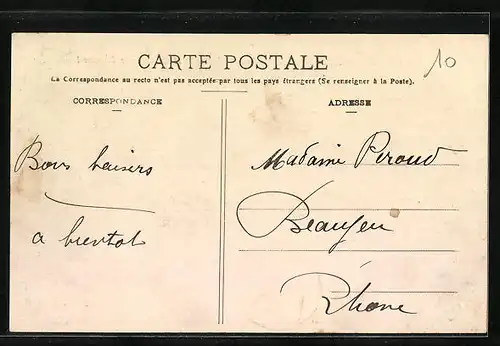 CARTE POSTALE
10
La Correspondance au recto n'est pas acceptée par tous les pays étrangers (Se renseigner à la Poste).
CORRESPONDANCE
ADRESSE
Bons baisers
a bientot
Madame Peroud
Beaujeu
Rhone